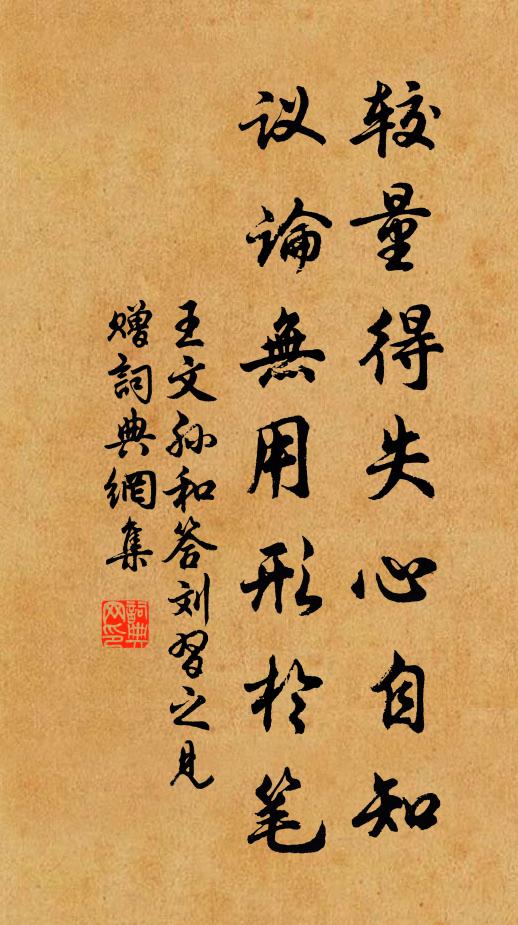 较量得失心自知
议論無用形於笔
王文孙和答刘習之見
赠詞典網集
詞典网印